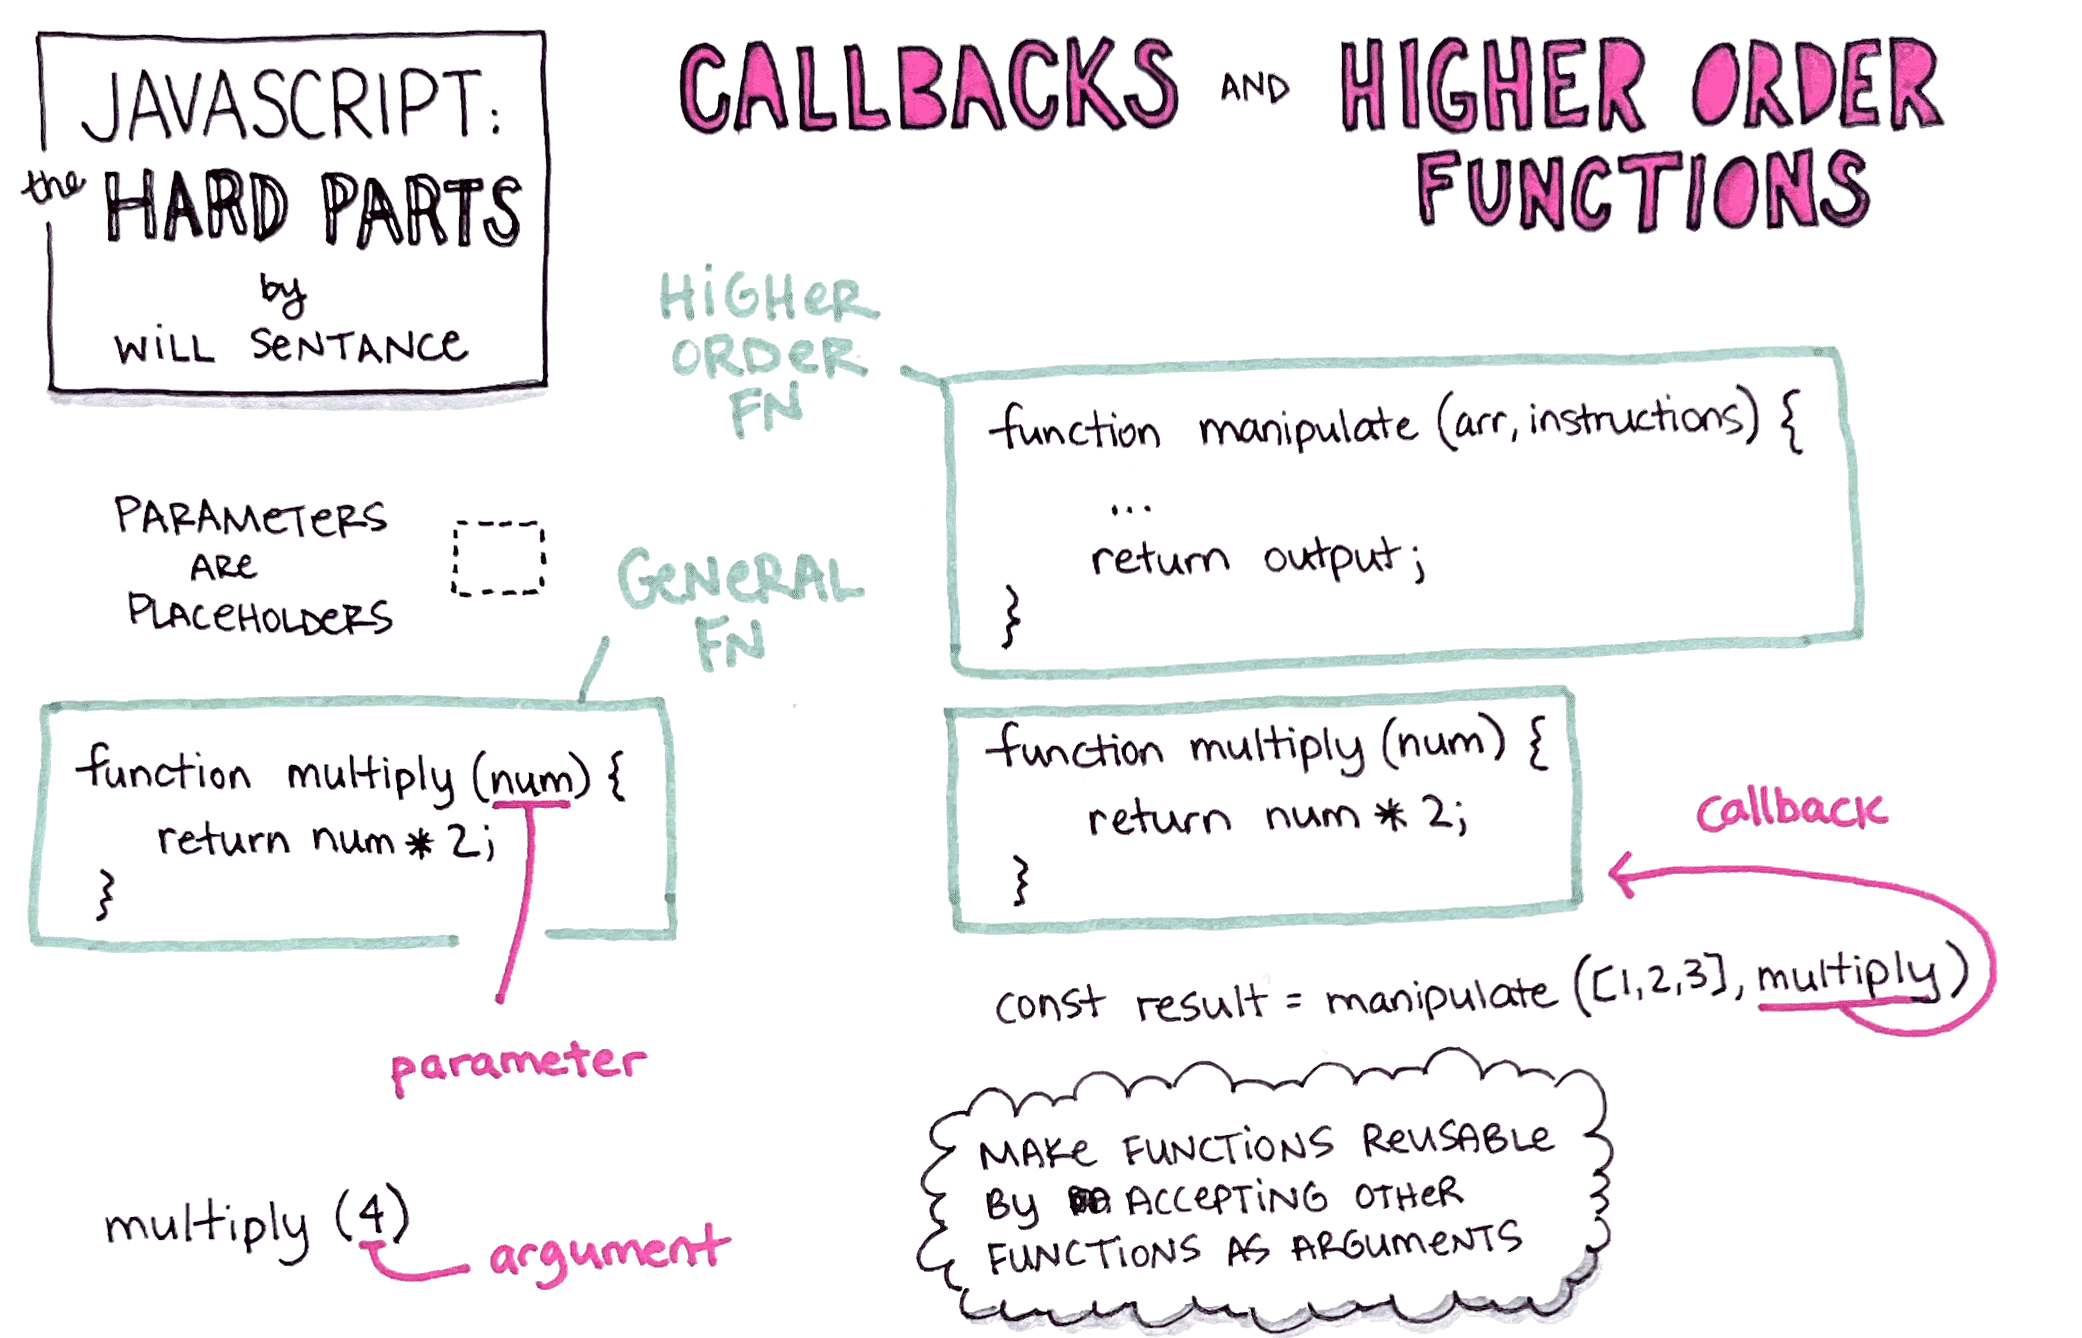 JAVASCRIPT:
the HARD PARTS
by
WILL SENTANCE
CALLBACKS AND HIGHER ORDER
FUNCTIONS
PARAMETERS
ARE
PLACEHOLDERS
GENERAL
FN
function multiply (num) {
return num * 2;
}
parameter
multiply (4)
argument
HIGHER
ORDER
FN
function manipulate (arr, instructions) {
...
return output;
}
function multiply (num) {
return num * 2;
}
callback
const result = manipulate ([1,2,3], multiply)
MAKE FUNCTIONS REUSABLE
BY ACCEPTING OTHER
FUNCTIONS AS ARGUMENTS